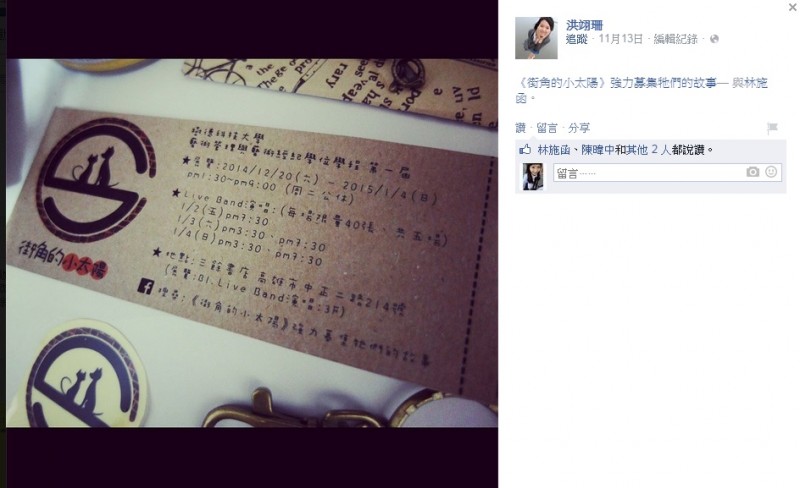 樹德科技大學
藝術管理與藝術經紀學位學程 第一屆
★展覽:2014/12/20(六) - 2015/1/4(日)
pm1:30~pm9:00 (周二公休)
★Live Band演唱:(每場限量40張、共五場)
1/2(五)pm7:30
1/3(六)pm3:30、pm7:30
1/4(日)pm3:30、pm7:30
★地點:三餘書店 高雄市中正二路214號
(展覽:B1、Live Band演唱:3F)
搜尋:《街角的小太陽》強力募集牠們的故事
街角的小太陽
洪翊珊
追蹤 · 11月13日 · 編輯紀錄 ·
《街角的小太陽》強力募集牠們的故事— 與林施
函。
讚 · 留言 · 分享
林施函、陳暐中和其他 2 人都說讚。
留言……